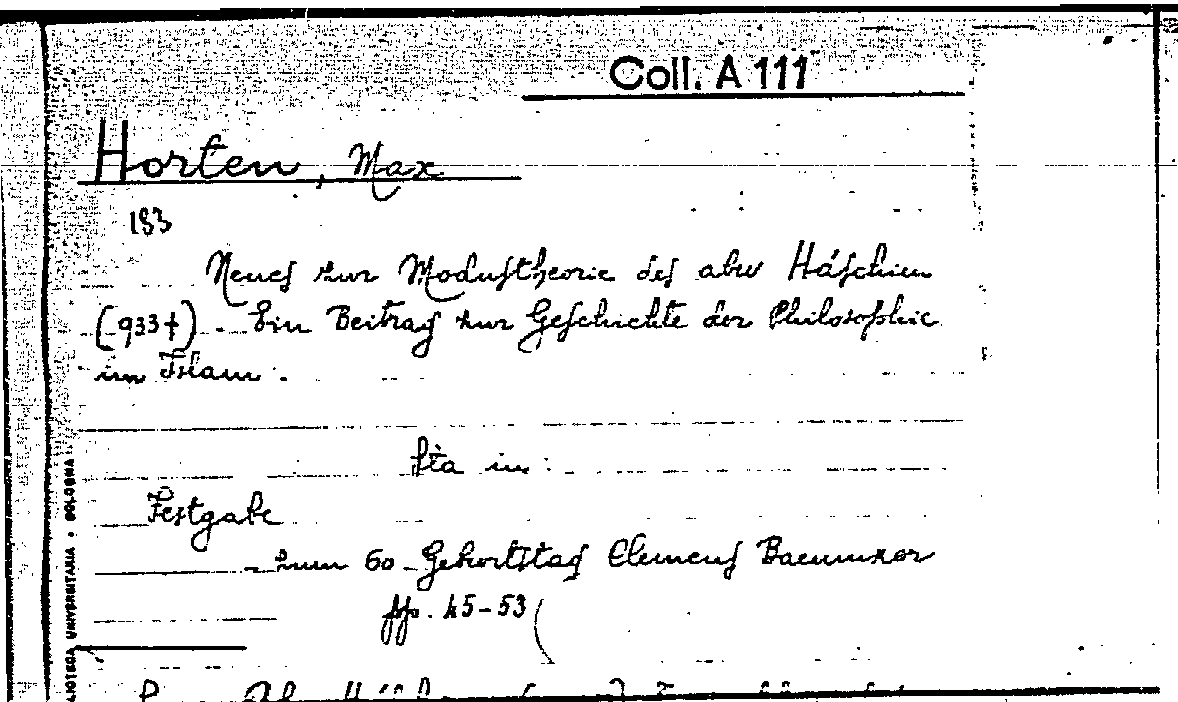 Coll. A 111
Horten, Max
183
Neues zur Modustheorie des abu Háschim
(933†). Ein Beitrag zur Geschichte der Philosophie
im Islam.
Sta in:
Festgabe
zum 60 Geburtstag Clemens Baeumker
pp. 45-53
BIBLIOTECA UNIVERSITARIA • BOLOGNA